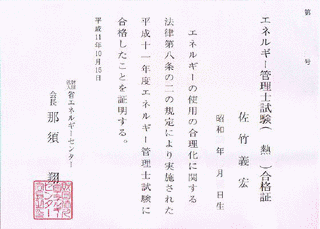 第 号
エネルギー管理士試験( 熱 )合格証
佐竹義宏
昭和 年 月 日生
エネルギーの使用の合理化に関する
法律第八条の二の規定により実施された
平成十一年度エネルギー管理士試験に
合格したことを証明する。
平成11年10月15日
財団法人 省エネルギーセンター
会長 那須 翔